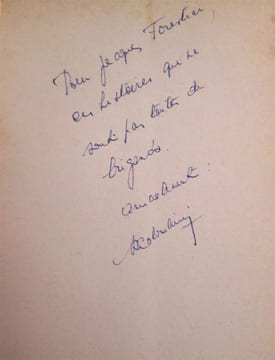 Pour Jacques Forestier,
ces histoires qui ne
sont pas toutes de
brigands.
amicalement